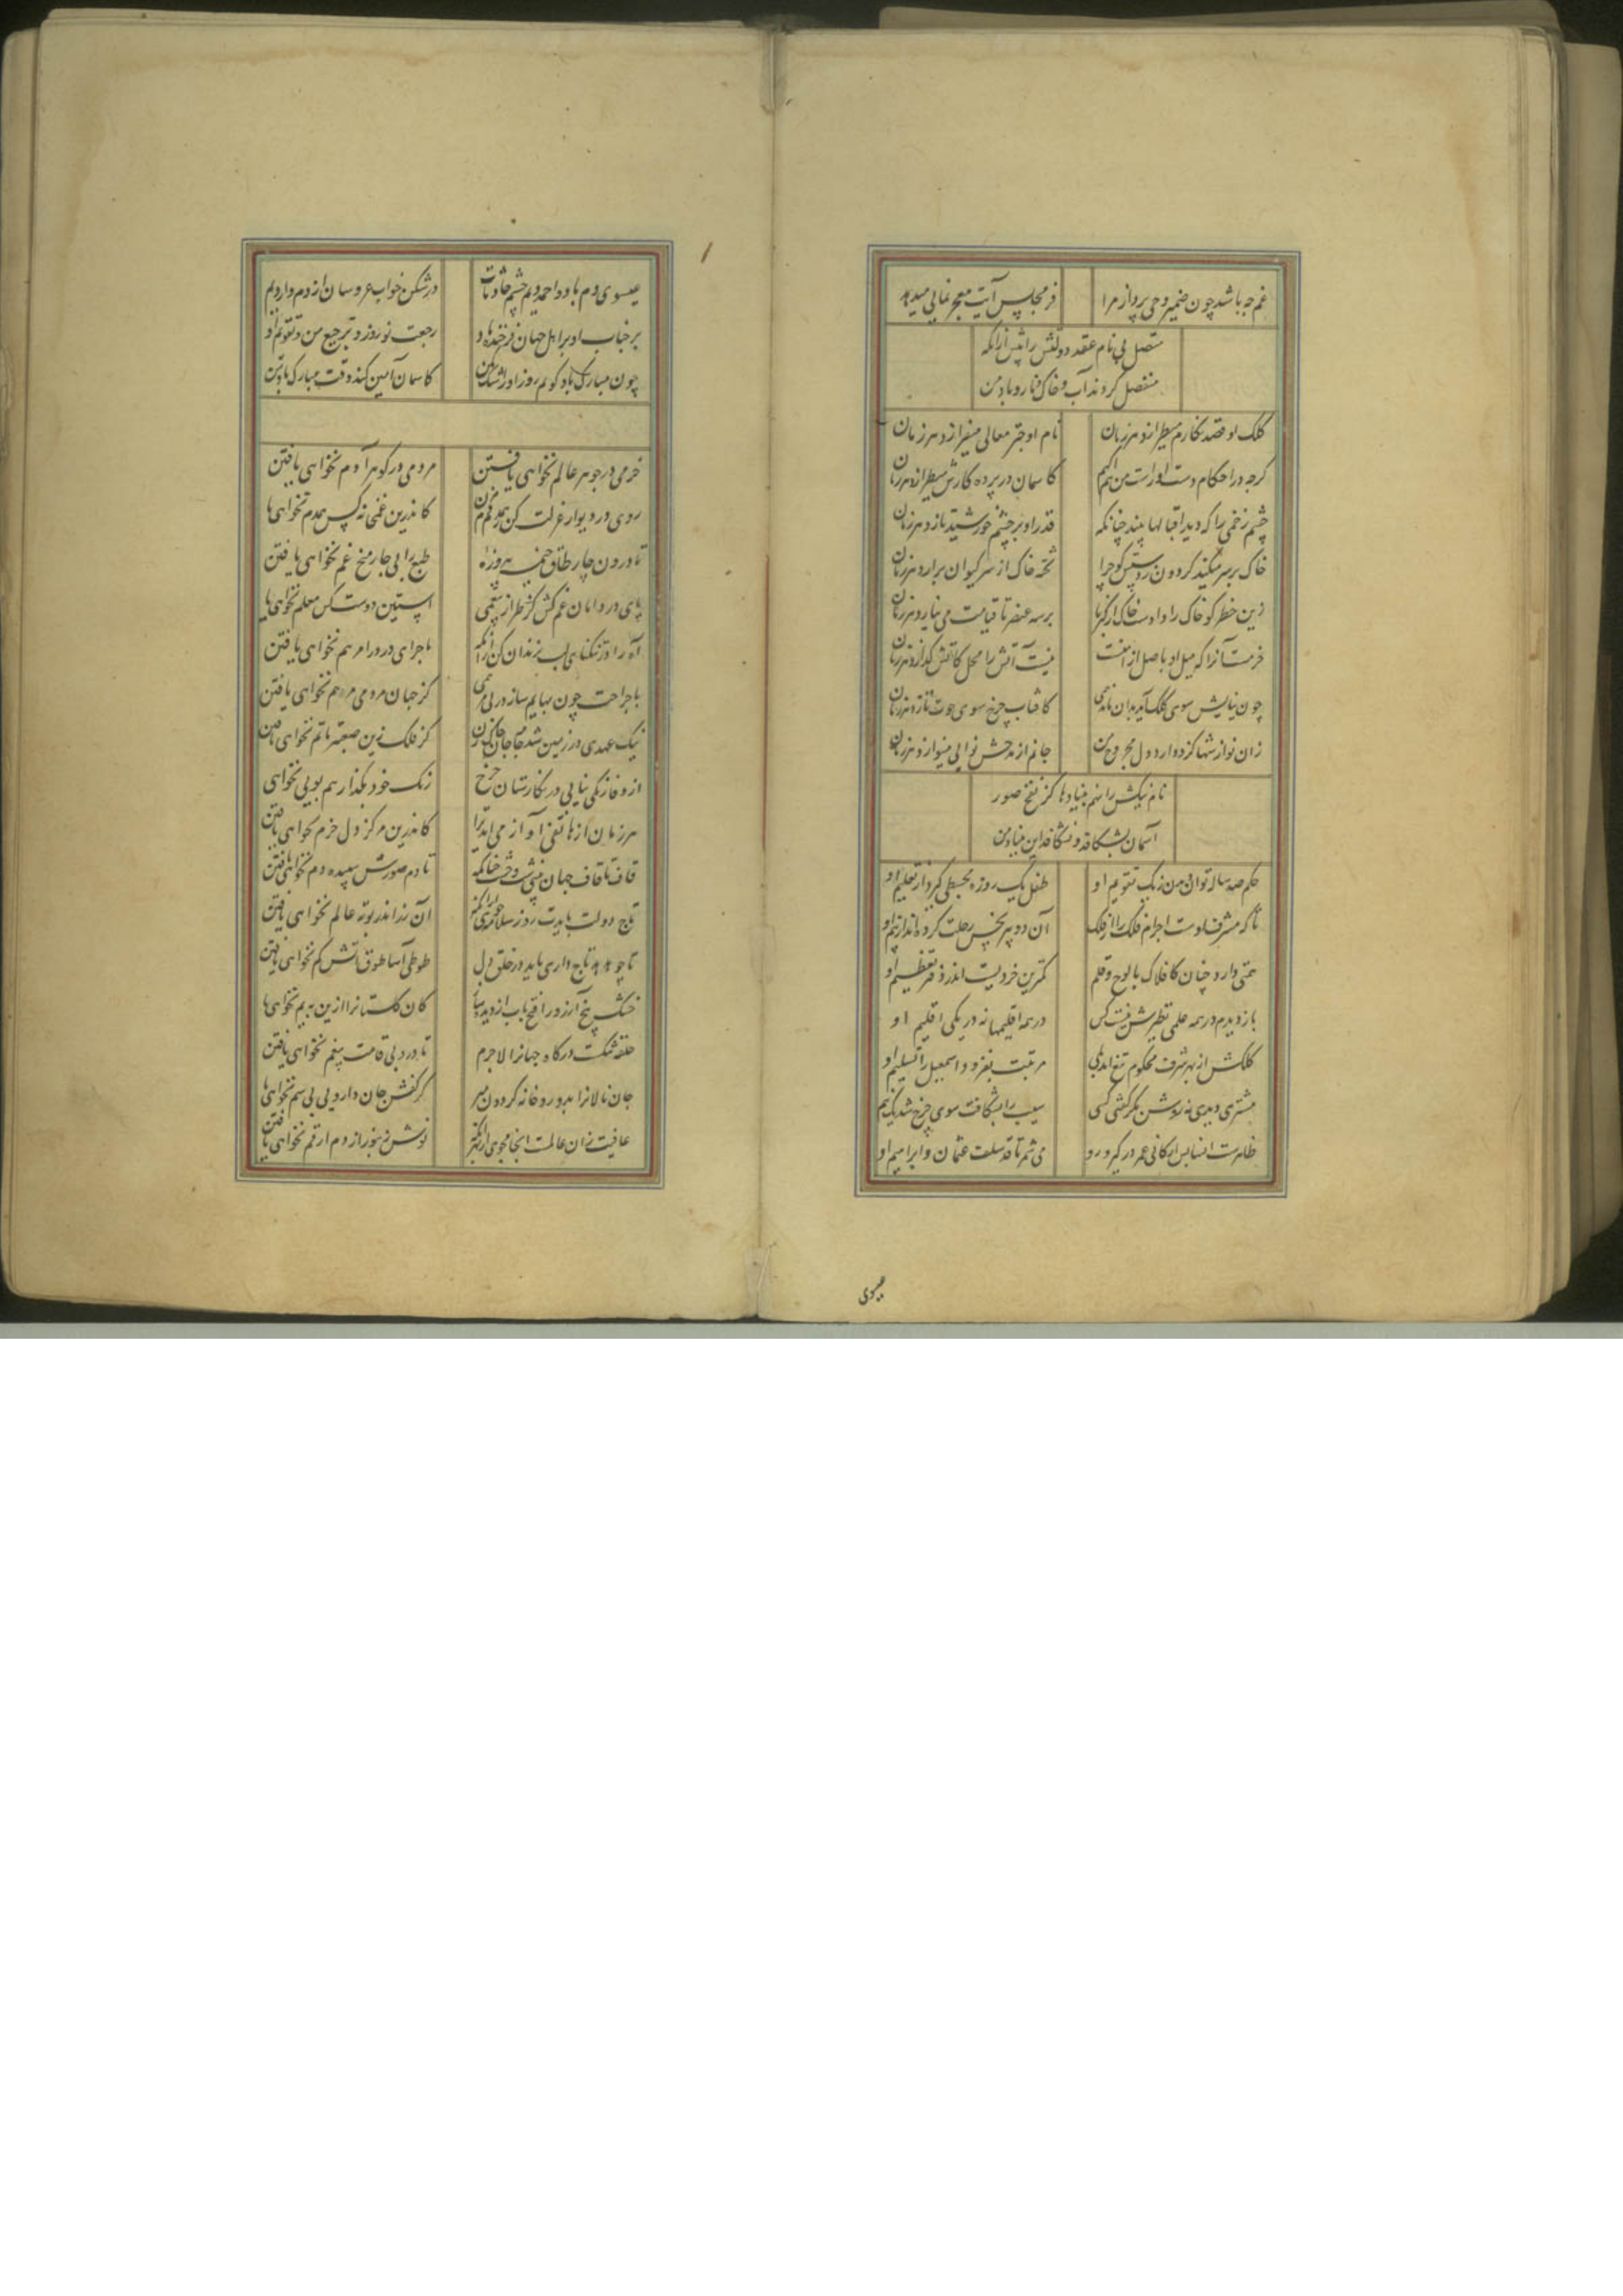 غم جه باشد چون ضمیر وحی پرداز مرا
فر مجلس آیت معجز نمایی میدهد
متصل بی نام عقد دولتش را پیش ازانکه
منفصل کردند آب و خاک و نار و باد من
کلک او قصد نکارم میطرازد هر زمان
نام او جتر معالی میفرازد هر زمان
کرجه در احکام دست او راست من هم
کاسمان در پرده کارش میطرازد هر زمان
چشم زخمی را که دید اقبالها بیند چنانکه
قدر او بر چشم خورشید نازد هر زمان
خاک بر سر میکند کردون ز دستش کو چرا
تخته خاک از سر کیوان برارد هر زمان
زین خطر کو خاک را دادست خاک از کبریا
بر سه عنصر تا قیامت می نیازد هر زمان
خرمست آنرا که میل او با صل از
نیست آتش را محل کاتش کدازد هر زمان
چون نیایش سوی کلک آید بدان ماند همی
کافتاب چرخ سوی حوت تازد هر زمان
زان نوازشها کزو دارد دل مجروح من
جانم از مدحش نوایی مینوازد هر زمان
نام نیکش را نهم بنیادها کز نفخ صور
آسمان بشکافد و نشکافد این بنیاد من
حکم صد ساله توان من زیک تقویم او
طفل یک روزه مجسطی کیرد از تعلیم او
تا که مشرف اوست اجرام فلک را از فلک
آن دو پیر نحس رحلت کرده اند از بیم او
همتی دارد چنان کافلاک با لوح و قلم
کمترین خردیست اندر دفتر تعظیم او
باز دیدم در همه علمی نظیرش نیست کس
در همه اقلیمها نه در یکی اقلیم او
کلکش از بهر شرف محکوم تیغ آمد بلی
مرتبت بفزود اسمعیل را تسلیم او
مشتری دیدی نه روشن بکر کفتی کسی
سیب را بشکافت سوی چرخ شد یک نیم او
میشمر تا قد سلف عثمان و ابراهیم او
عیسوی دم باد و احمد دیم چشم حادثات
در شکن خواب عروسان از دم و از دیم
بر جناب او بر اهل جهان فرخنده باد
رجعت نوروز و ترجیع من و تقویم او
چون مبارک باد کویم روز او را
کاسمان آمین کند وقت مبارک باد من
خرمی در جوهر عالم نخواهی یافتن
مردمی در کوهر آدم نخواهی یافتن
روی در دیوار عزلت کن در همدم مزن
کاندرین غمخانه کس همدم نخواهی یا
تا درون چار طاق خیمه پیروزه
طبع را بی چار میخ غم نخواهی یافتن
پای در دامان غم کش کز طراز بیغمی
آستین دست کس معلم نخواهی یا
آه را در تنکنای لب بزندان کن از آنکه
ماجرای درد را مرهم نخواهی یافتن
با جراحت چون بهایم ساز در بی مرهمی
کز جهان مردمی مرهم نخواهی یافتن
نیک عهدی در زمین شد جامه جان چاک زن
کز فلک زین صعبتر ماتم نخواهی یافتن
از وفا رنکی نیابی در نکارستان چرخ
رنک خود بکذار هم بویی نخواهی
هر زمان از هاتفی آواز می آید ترا
کاندرین مرکز دل خرم نخواهی یافتن
قاف تا قاف جهان بینی شب وحشت چنانکه
تا دم صورش سپیده دم نخواهی یافتن
تاج دولت بایدت زر سلامت جوی
آن زر اندر بوته عالم نخواهی یافتن
تا چو هدهد تاج داری باید در حلق دل
طوطی آسا طوق آتش کم نخواهی یافتن
خشک بیخ آرزو را فتح باب از دیده ساز
کان کلستانرا ازین به نم نخواهی یا
حلقه تنکست درکاه جهانرا لاجرم
تا درو بی قامت پر خم نخواهی یافتن
جان نالانرا بدارو خانه کردون مبر
کز کفش جان دارویی بی سم نخواهی یا
عافیت زان عالمست اینجا مجوی از بهر آنک
نوش زنبور از دم ارقم نخواهی یافتن
عیسوی